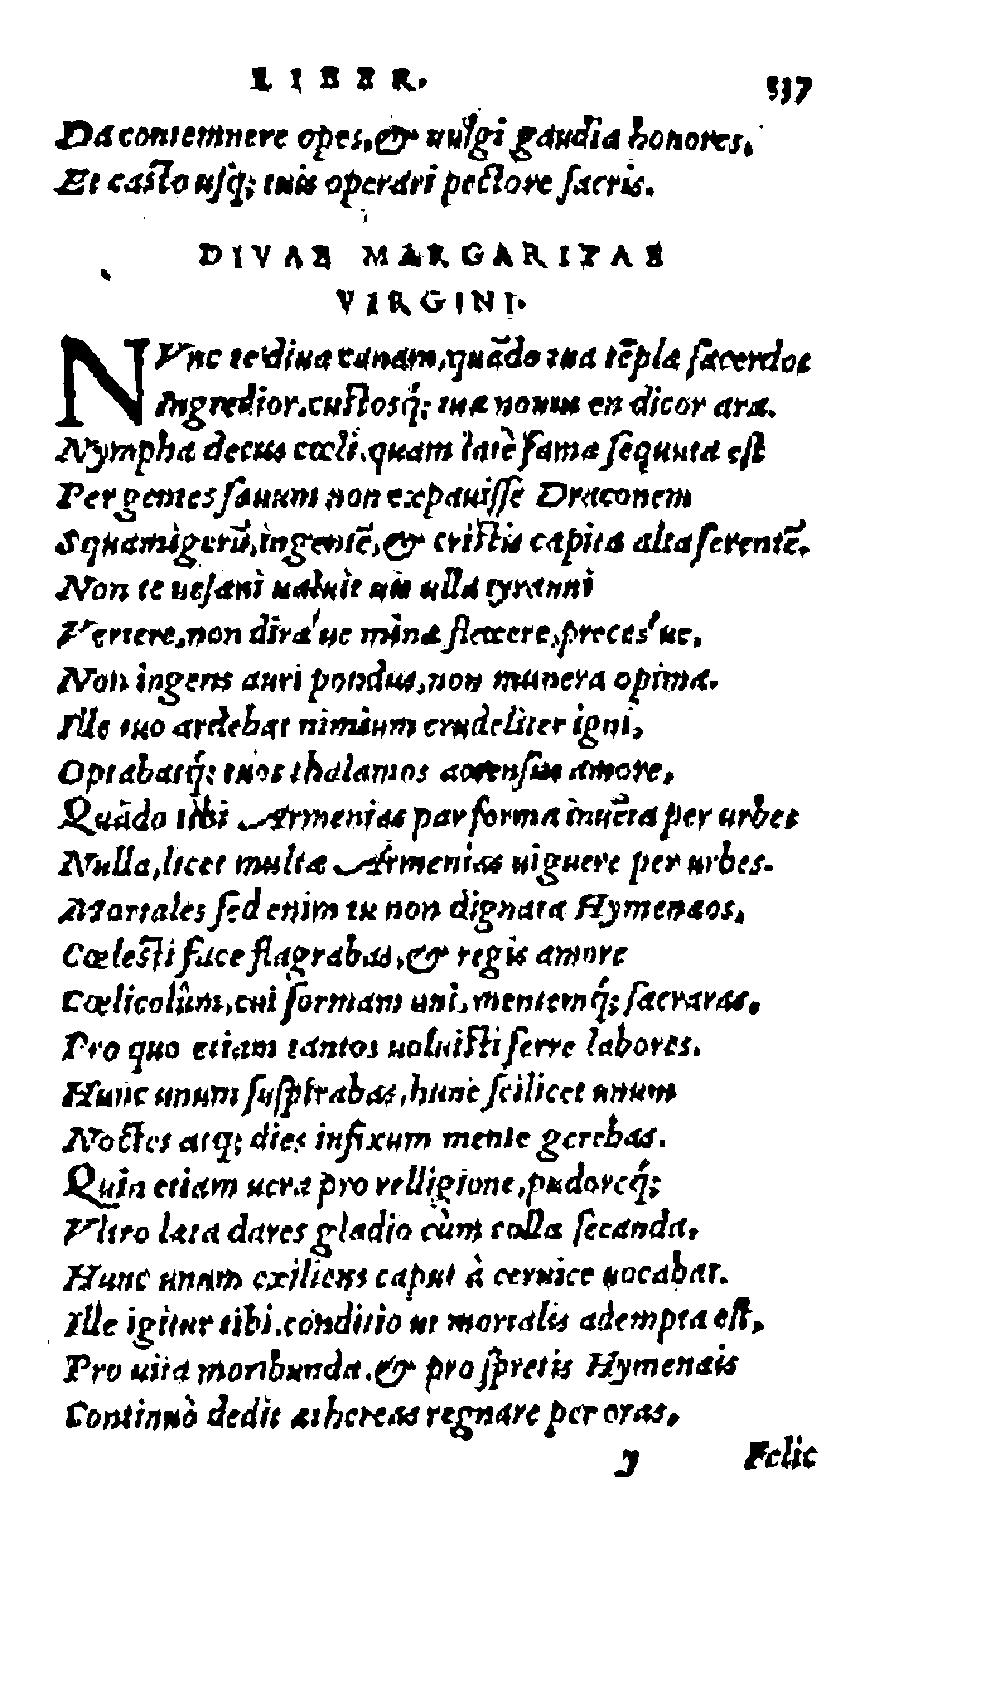 LIBER. 537
Da contemnere opes, & uulgi gaudia honores,
Et casto usq; tuis operari pectore sacris.
DIVAE MARGARITAE
VIRGINI.
NVnc te diua canam, quãdo tua tẽpla sacerdos
Ingredior, custosq́; tuæ nouus en dicor aræ.
Nympha decus cœli, quam latè fama sequuta est
Per gentes sæuum non expauisse Draconem
Squamigerũ, ingentẽ, & cristis capita alta ferentẽ.
Non te uesani ualuit uis ulla tyranni
Vertere, non diræ'ue minæ flectere, preces'ue,
Non ingens auri pondus, non munera opima.
Ille tuo ardebat nimium crudeliter igni,
Optabatq́; tuos thalamos accensus amore,
Quãdo tibi Armenias par forma inuẽta per urbes
Nulla, licet multæ Armenias uiguere per urbes.
Mortales sed enim tu non dignata Hymenæos,
Cœlesti face flagrabas, & regis amore
Cœlicolûm, cui formam uni, mentemq́; sacraras,
Pro quo etiam tantos uoluisti ferre labores.
Hunc unum suspirabas, hunc scilicet unum
Noctes atq; dies infixum mente gerebas.
Quin etiam uera pro relligione, pudoreq́;
Vltro lata dares gladio cùm colla secanda,
Hunc unum exiliens caput à ceruice uocabat.
Ille igitur tibi, conditio ut mortalis adempta est,
Pro uita moribunda, & pro spretis Hymenæis
Continuò dedit æthereas regnare per oras,
J Felic